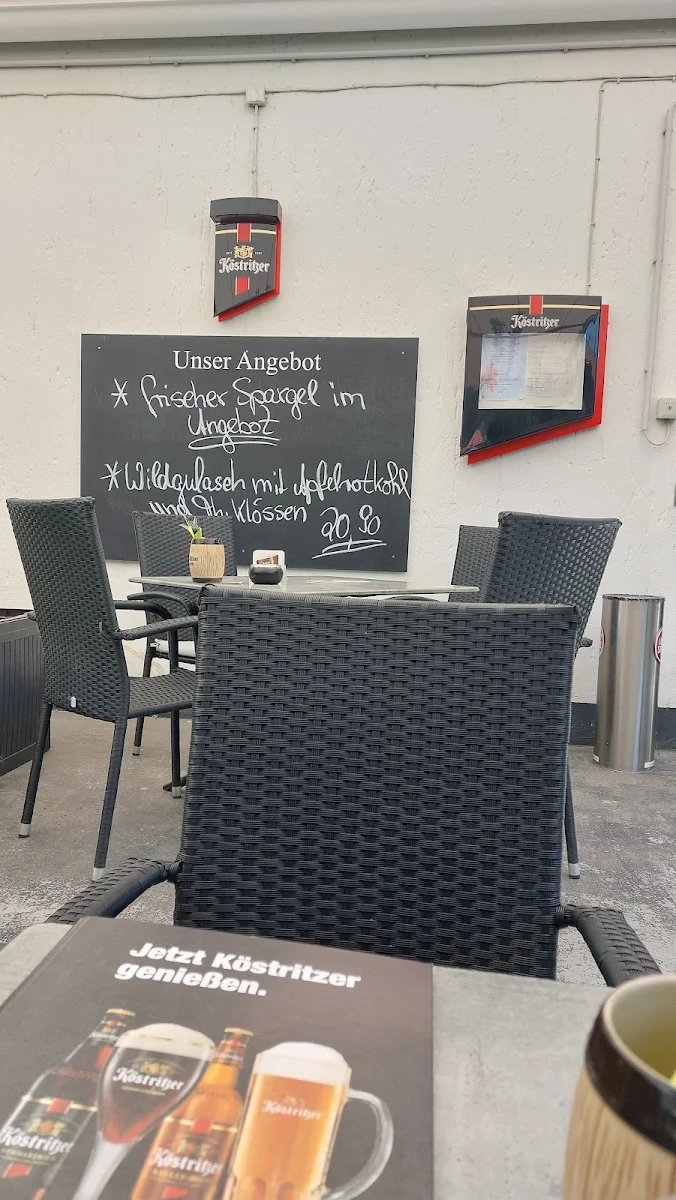 Köstritzer
Köstritzer
Unser Angebot
* frischer Spargel im
Angebot
* Wildgulasch mit Apfelrotkohl
und Th. Klössen 20,90
Jetzt Köstritzer
genießen.
Köstritzer
Köstritzer
Köstritzer
Köstritzer